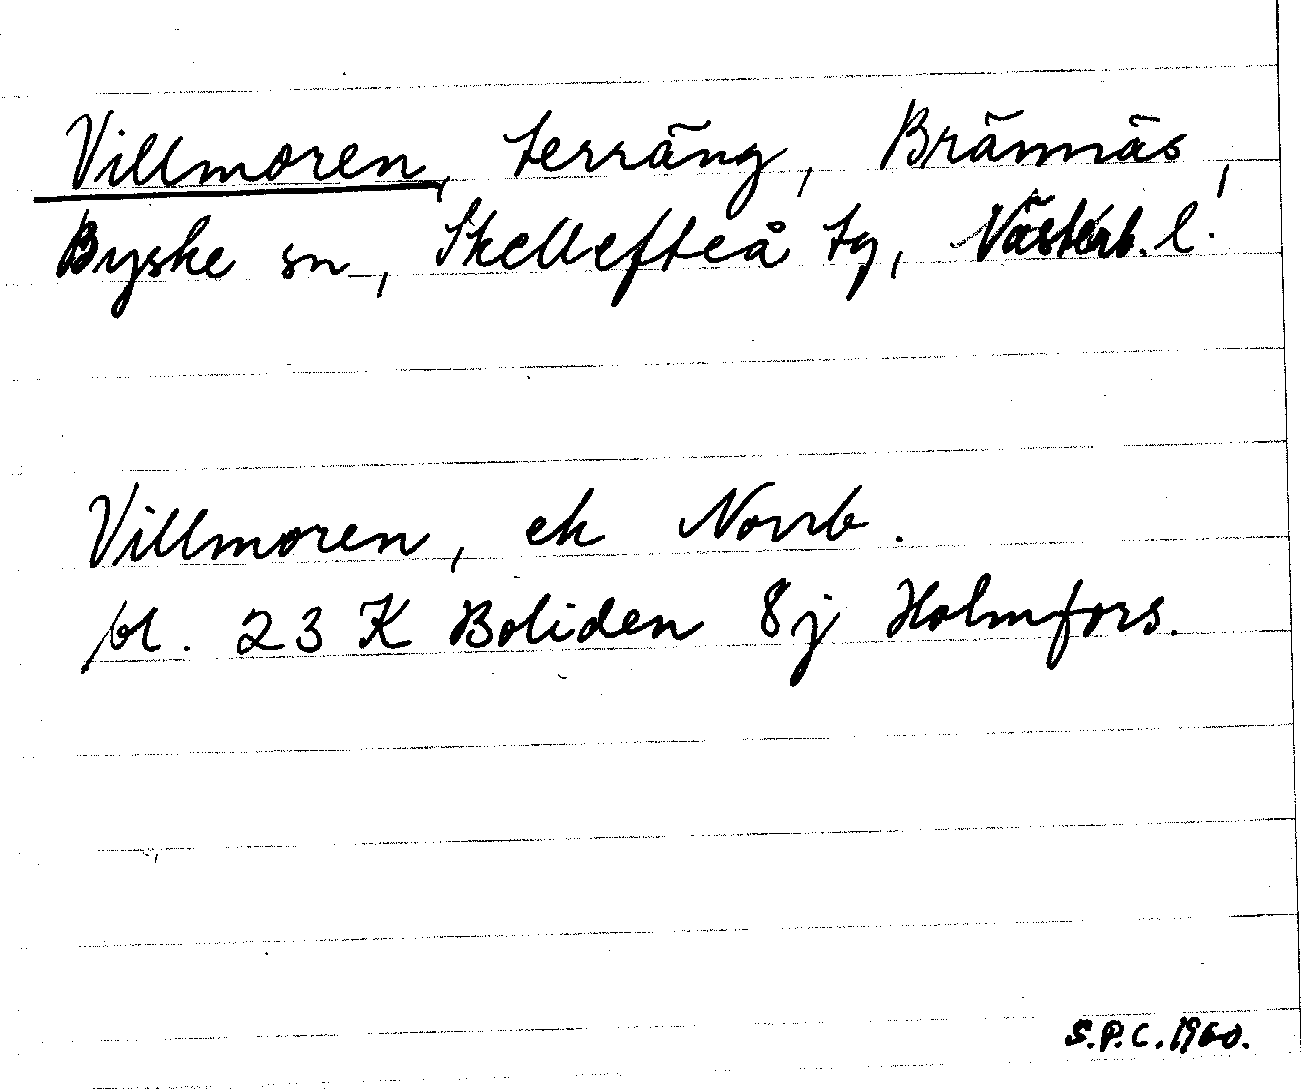 Villmoren, terräng, Brännäs,
Byske sn, Skellefteå tg, Västerb. l.
Villmoren, ek Norrb.
bl. 23 K Boliden 8j Holmfors.
S.P.C. 1960.